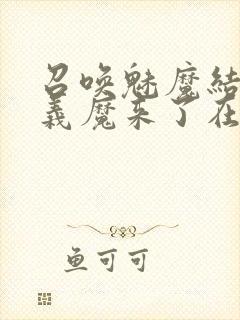 召唤魅魔结
义魔来了在
鱼可可